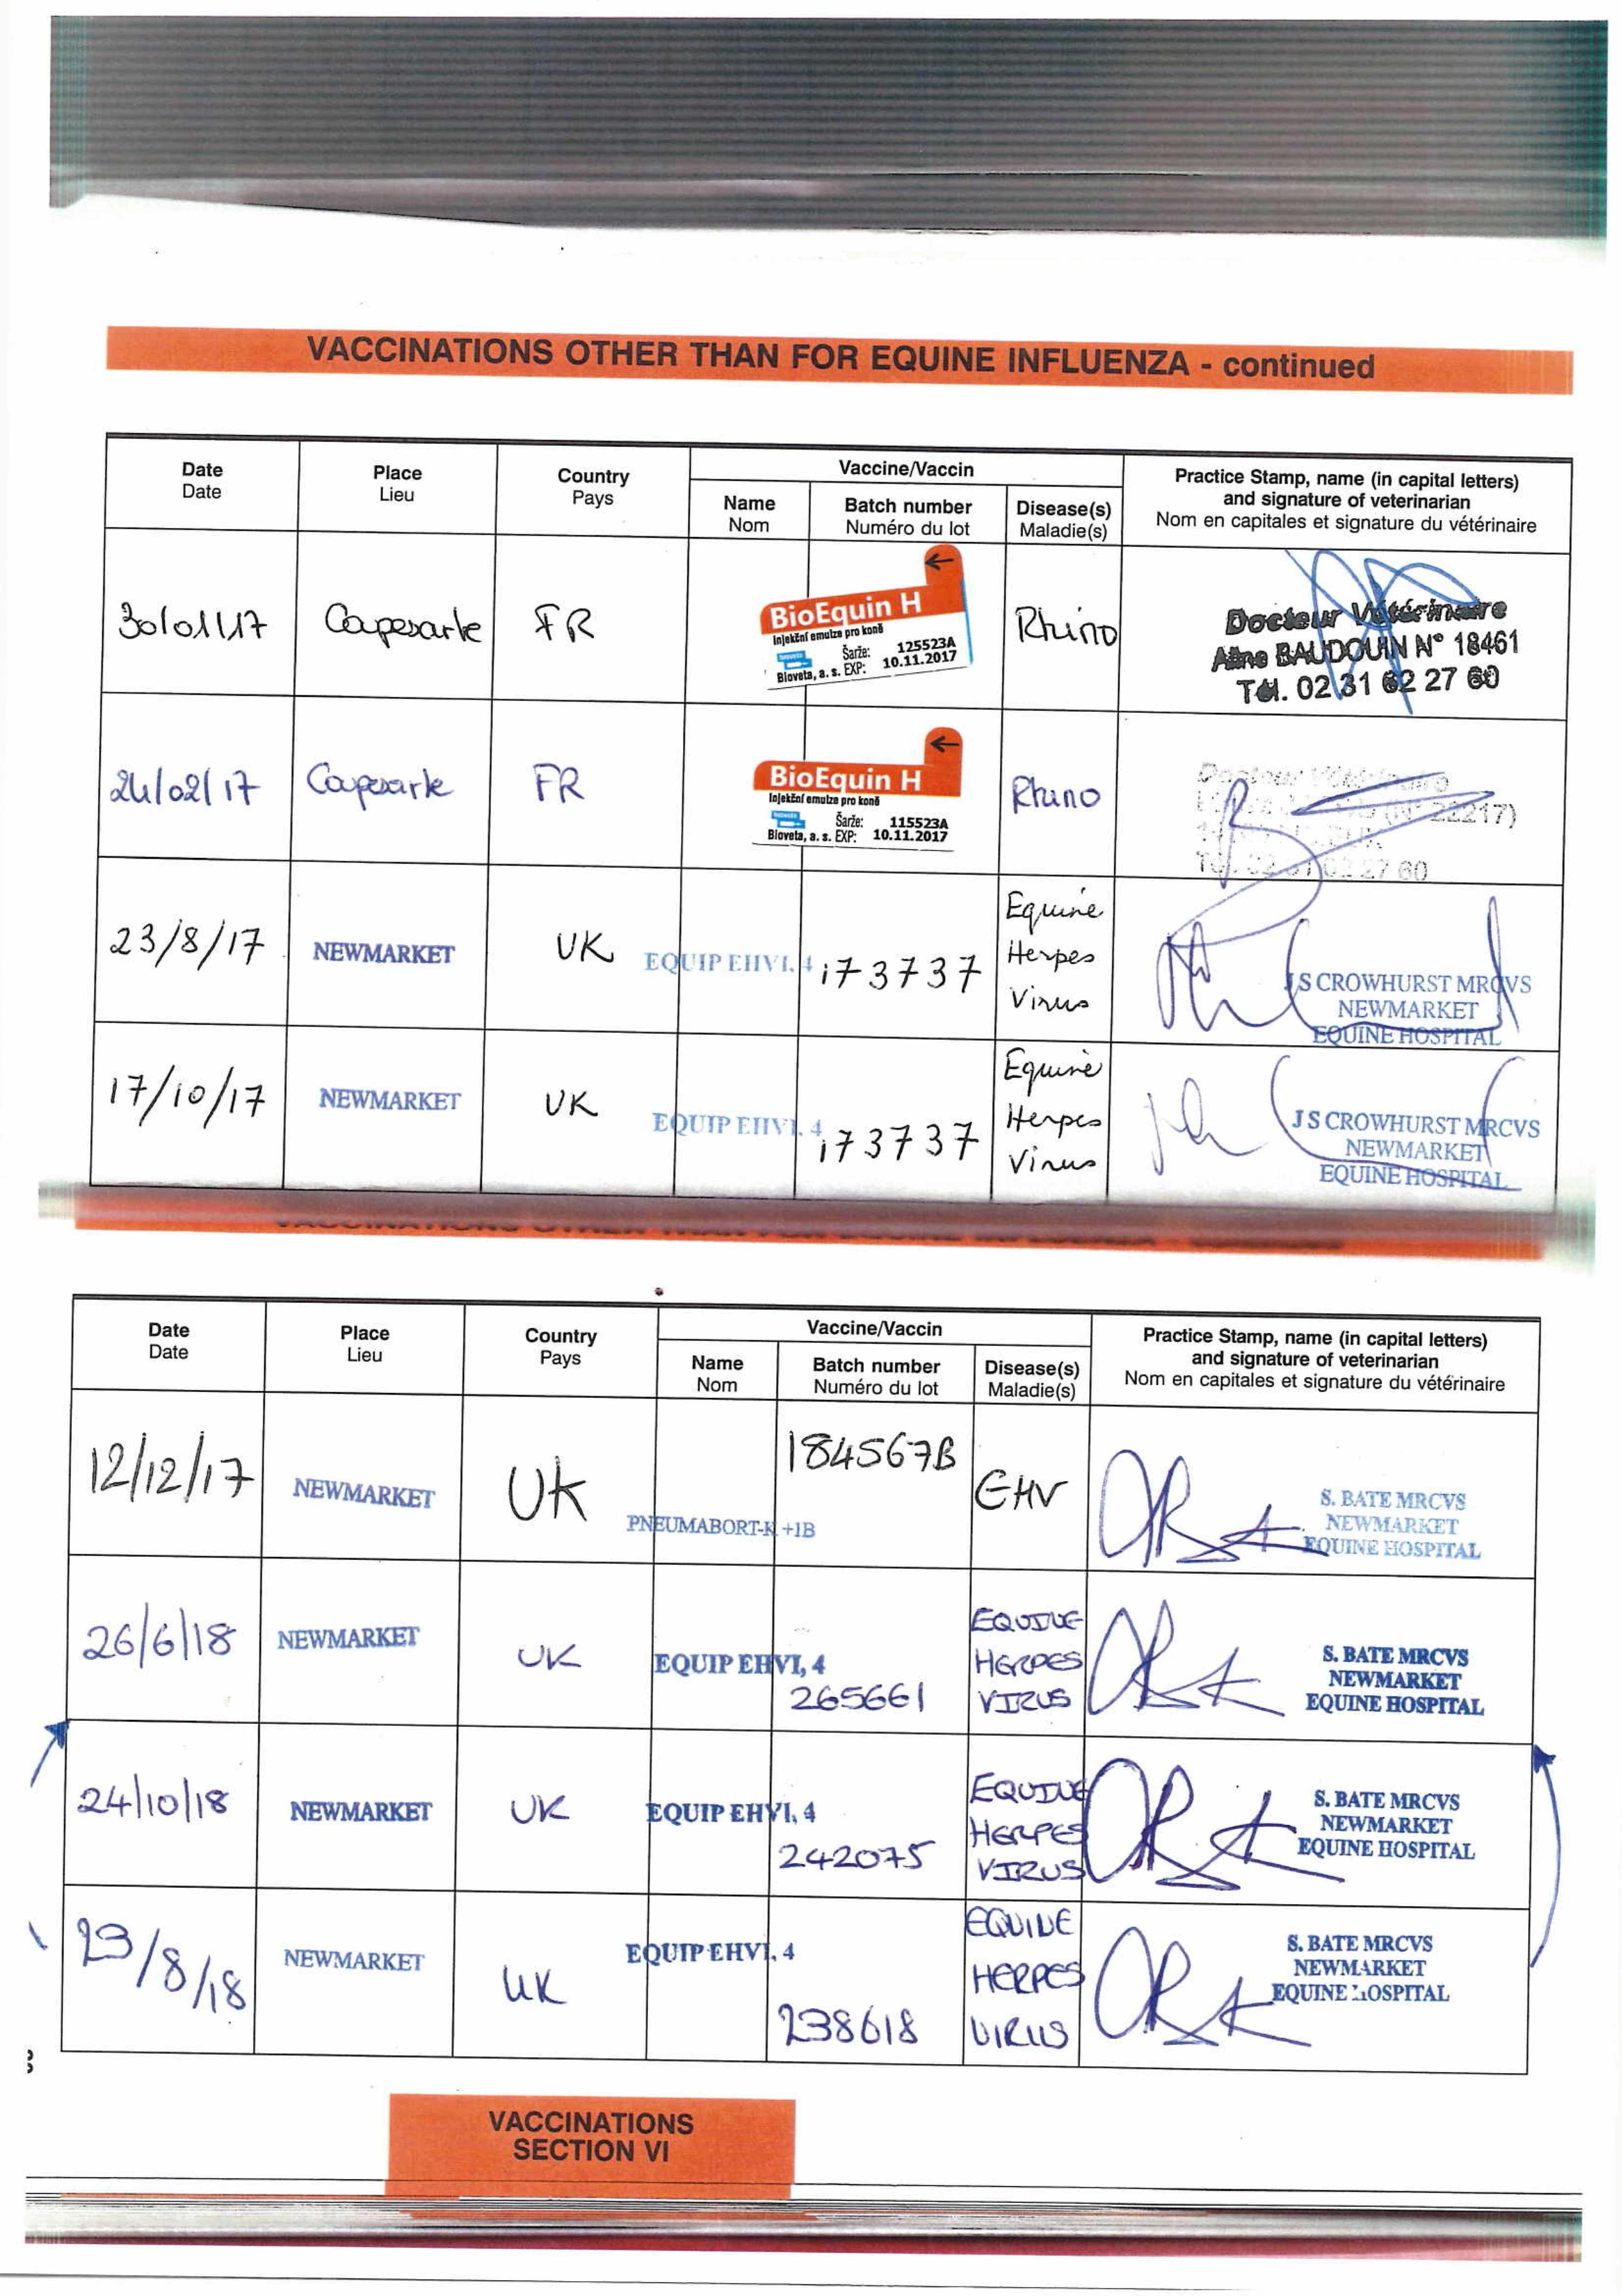 VACCINATIONS OTHER THAN FOR EQUINE INFLUENZA - continued
Date
Date
Place
Lieu
Country
Pays
Vaccine/Vaccin
Name
Nom
Batch number
Numéro du lot
Disease(s)
Maladie(s)
Practice Stamp, name (in capital letters)
and signature of veterinarian
Nom en capitales et signature du vétérinaire
30/01/17
FR
BioEquin H
Injekční emulze pro koně
Šarže: 125523A
Bioveta, a. s. EXP: 10.11.2017
Rhino
Docteur Vétérinaire
BAUDOUIN N° 18461
Tél. 02 31 62 27 60
24/02/17
FR
BioEquin H
Injekční emulze pro koně
Šarže: 115523A
Bioveta, a. s. EXP: 10.11.2017
Rhino
Docteur Vétérinaire
22217)
27 60
23/8/17
NEWMARKET
UK
EQUIP EHV1, 4
173737
Equine
Herpes
Virus
J S CROWHURST MRCVS
NEWMARKET
EQUINE HOSPITAL
17/10/17
NEWMARKET
UK
EQUIP EHV1, 4
173737
Equine
Herpes
Virus
J S CROWHURST MRCVS
NEWMARKET
EQUINE HOSPITAL
Date
Date
Place
Lieu
Country
Pays
Vaccine/Vaccin
Name
Nom
Batch number
Numéro du lot
Disease(s)
Maladie(s)
Practice Stamp, name (in capital letters)
and signature of veterinarian
Nom en capitales et signature du vétérinaire
12/12/17
NEWMARKET
UK
PNEUMABORT-K +1B
184567B
EHV
S. BATE MRCVS
NEWMARKET
EQUINE HOSPITAL
26/6/18
NEWMARKET
UK
EQUIP EHV1, 4
265661
EQUINE
HERPES
VIRUS
S. BATE MRCVS
NEWMARKET
EQUINE HOSPITAL
24/10/18
NEWMARKET
UK
EQUIP EHV1, 4
242075
EQUINE
HERPES
VIRUS
S. BATE MRCVS
NEWMARKET
EQUINE HOSPITAL
23/8/18
NEWMARKET
UK
EQUIP EHV1, 4
238618
EQUINE
HERPES
VIRUS
S. BATE MRCVS
NEWMARKET
EQUINE HOSPITAL
VACCINATIONS
SECTION VI